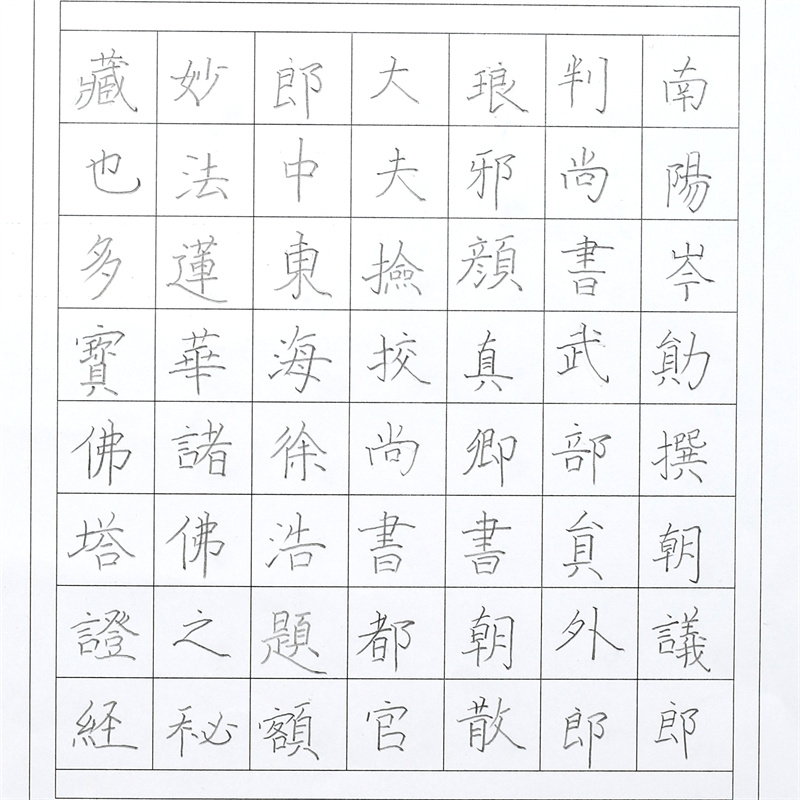 南陽岑勛撰朝議郎
判尚書武部貟外郎
琅邪顔真卿書朝散
大夫撿挍尚書都官
郎中東海徐浩題額
妙法蓮華諸佛之秘
藏也多寳佛塔證経